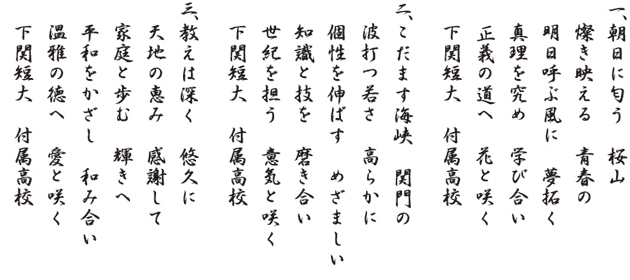 一、朝日に匂う　桜山
燦き映える　青春の
明日呼ぶ風に　夢拓く
真理を究め　学び合い
正義の道へ　花と咲く
下関短大　付属高校
二、こだます海峡　関門の
波打つ若さ　高らかに
個性を伸ばす　めざましい
知識と技を　磨き合い
世紀を担う　意気と咲く
下関短大　付属高校
三、教えは深く　悠久に
天地の恵み　感謝して
家庭と歩む　輝きへ
平和をかざし　和み合い
温雅の徳へ　愛と咲く
下関短大　付属高校